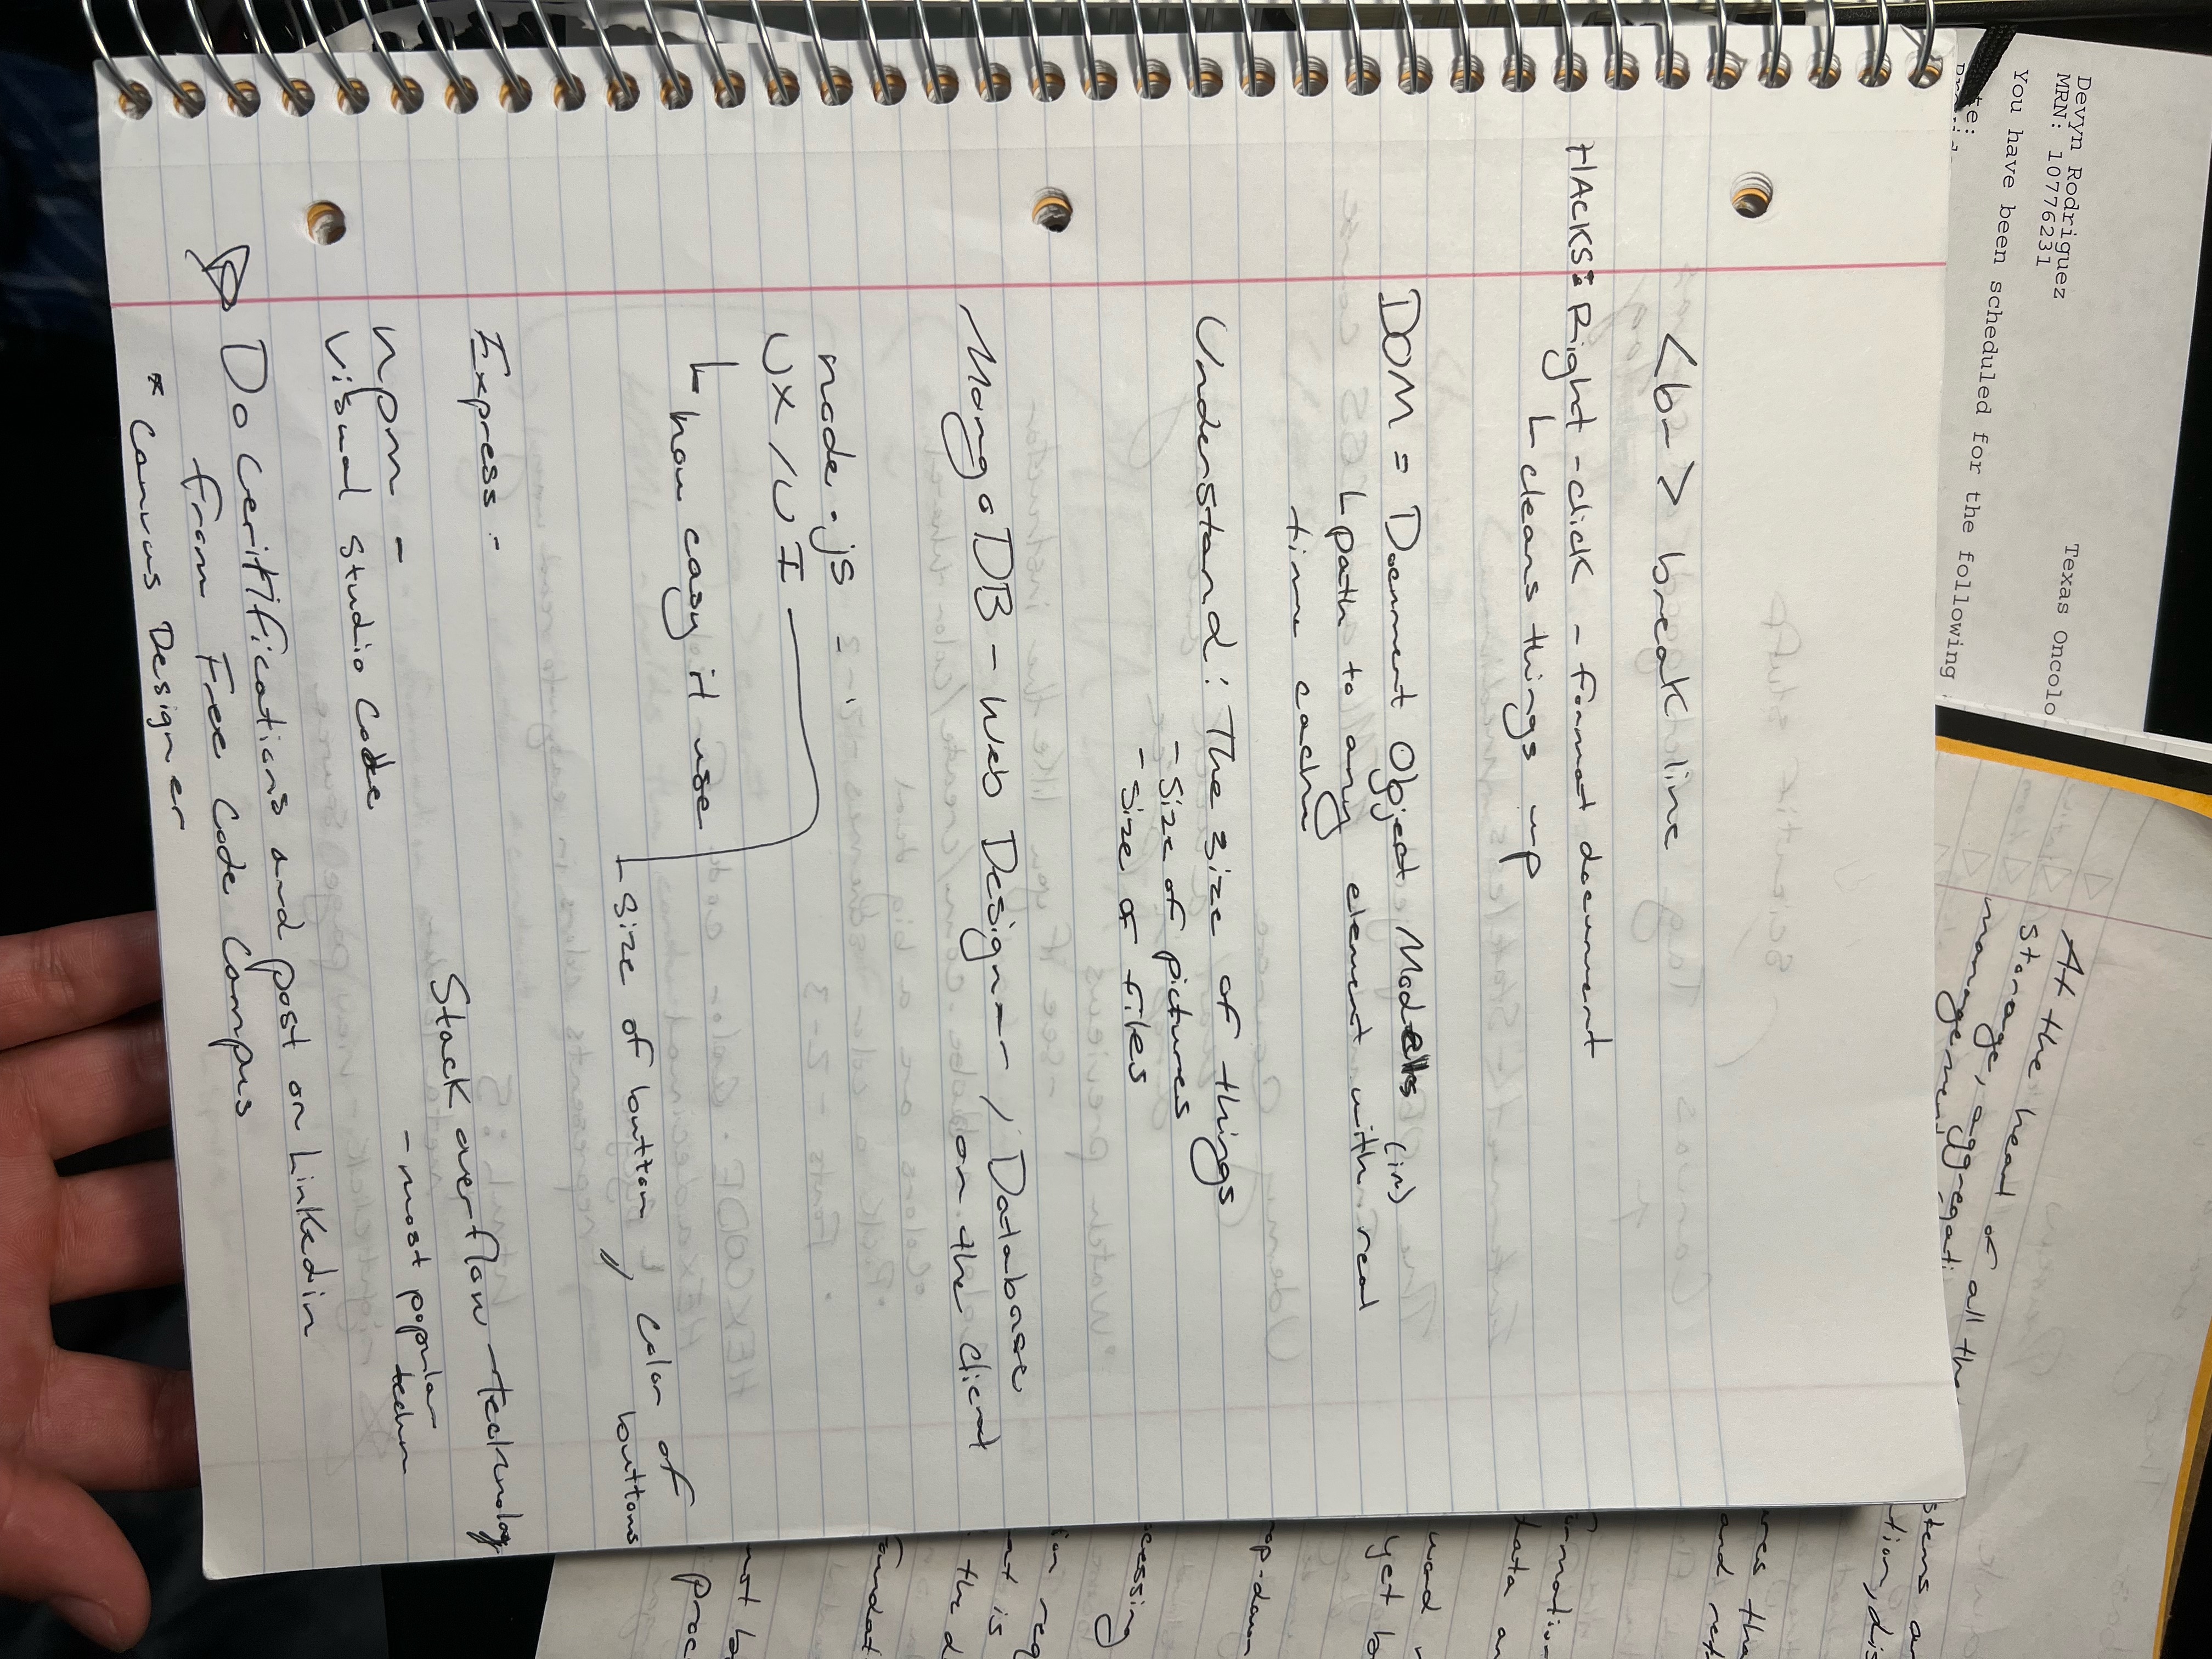 <br> break line
HACKS: Right-click - format document
L cleans things up
DOM = Document Object Models (in)
L path to any element with real
time each
Understand: The size of things
- size of pictures
- size of files
MongoDB - Web Designer, Database
on the client
node.js -
UX/UI
L how easy it use
L size of button, color of
buttons
Express -
Stack overflow - technology
npm -
- most popular
techn
Visual Studio Code
Do Ceritifications and post on Linkedin
from Free Code Campus
* Canvas Designer
Devyn Rodriguez
MRN: 10776231
Texas Oncolo
You have been scheduled for the following
At the heart of all the
storage,
manage, aggregati
management
stems an
tion, dis
ares tha
and ret
ormation
data an
yet
top-down
cessing
ion req
at is
the d
proc